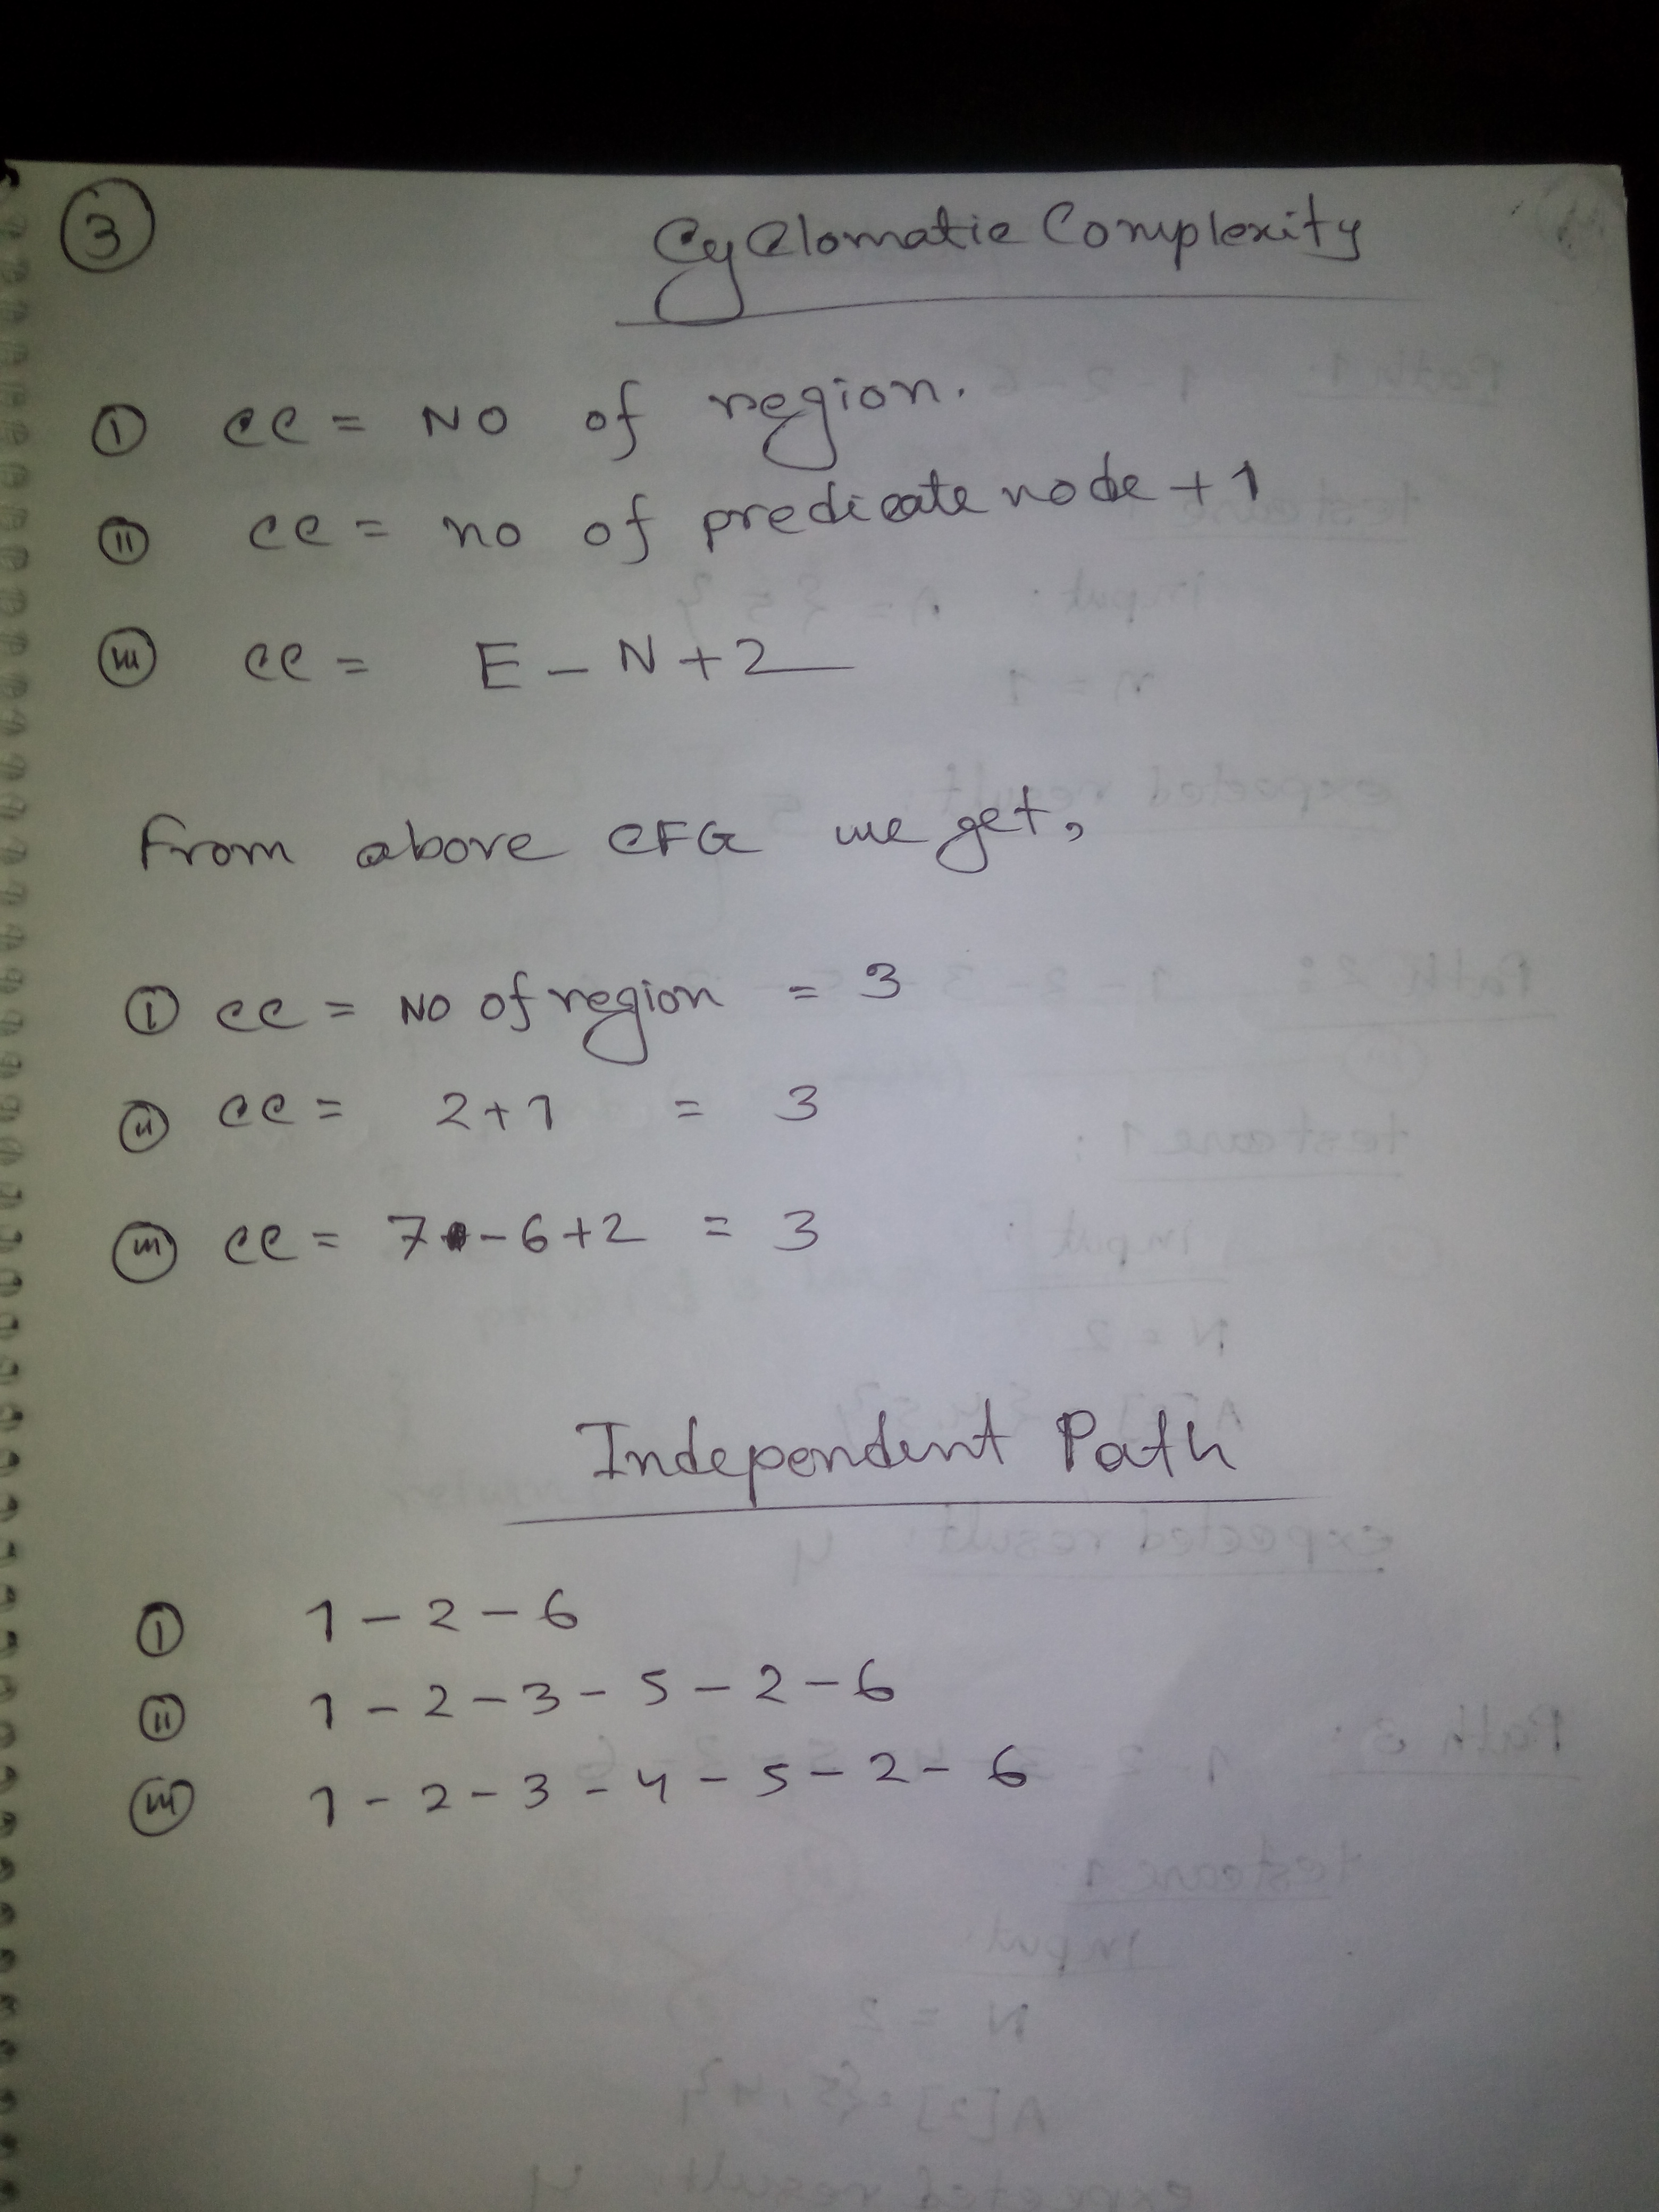 3
Cyclomatic Complexity
i CC = NO of region.
ii CC = no of predicate node + 1
iii CC = E - N + 2
From above CFG we get,
i CC = NO of region = 3
ii CC = 2+1 = 3
iii CC = 7 - 6 + 2 = 3
Independent Path
i 1 - 2 - 6
ii 1 - 2 - 3 - 5 - 2 - 6
iii 1 - 2 - 3 - 4 - 5 - 2 - 6